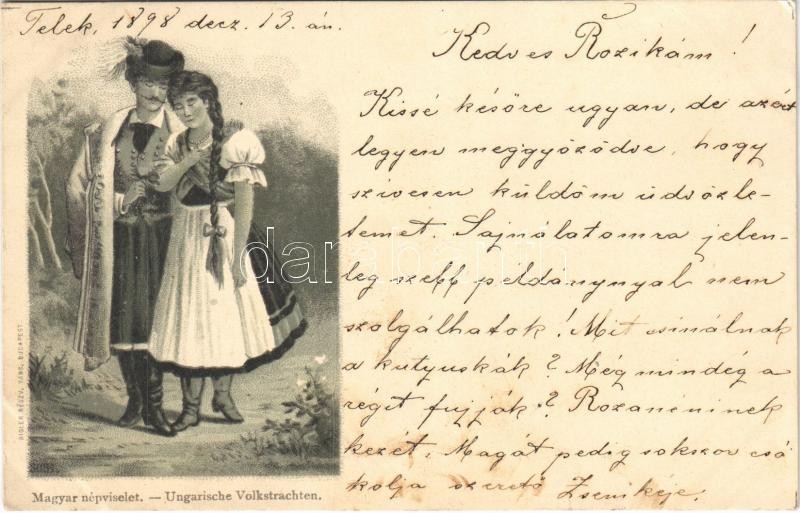 Telek, 1898 decz. 13. án.
Kedves Rozikám!
Kissé későre ugyan, de azért
legyen meggyőződve, hogy
szivesen küldöm üdvözle-
temet. Sajnálatomra jelen-
leg szebb példánynyal nem
szolgálhatok! Mit csinálnak
a kutyuskák? Még mindég a
régit fujják? Rozanéninek
kezét, Magát pedig sokszor csó
kolja szerető Zsenikéje.
RIGLER RÉSZV. TÁRS. BUDAPEST.
Magyar népviselet. — Ungarische Volkstrachten.
darabanth